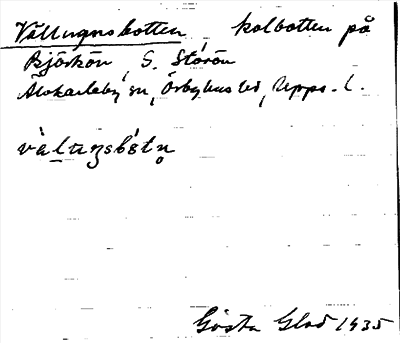 Vällugnsbotten kolbotten på
Björkön, S. Störön
Älvkarleby sn, Örbyhus hd, Upps. l.
vàlugsbǿtṇ
Gösta Glad 1935